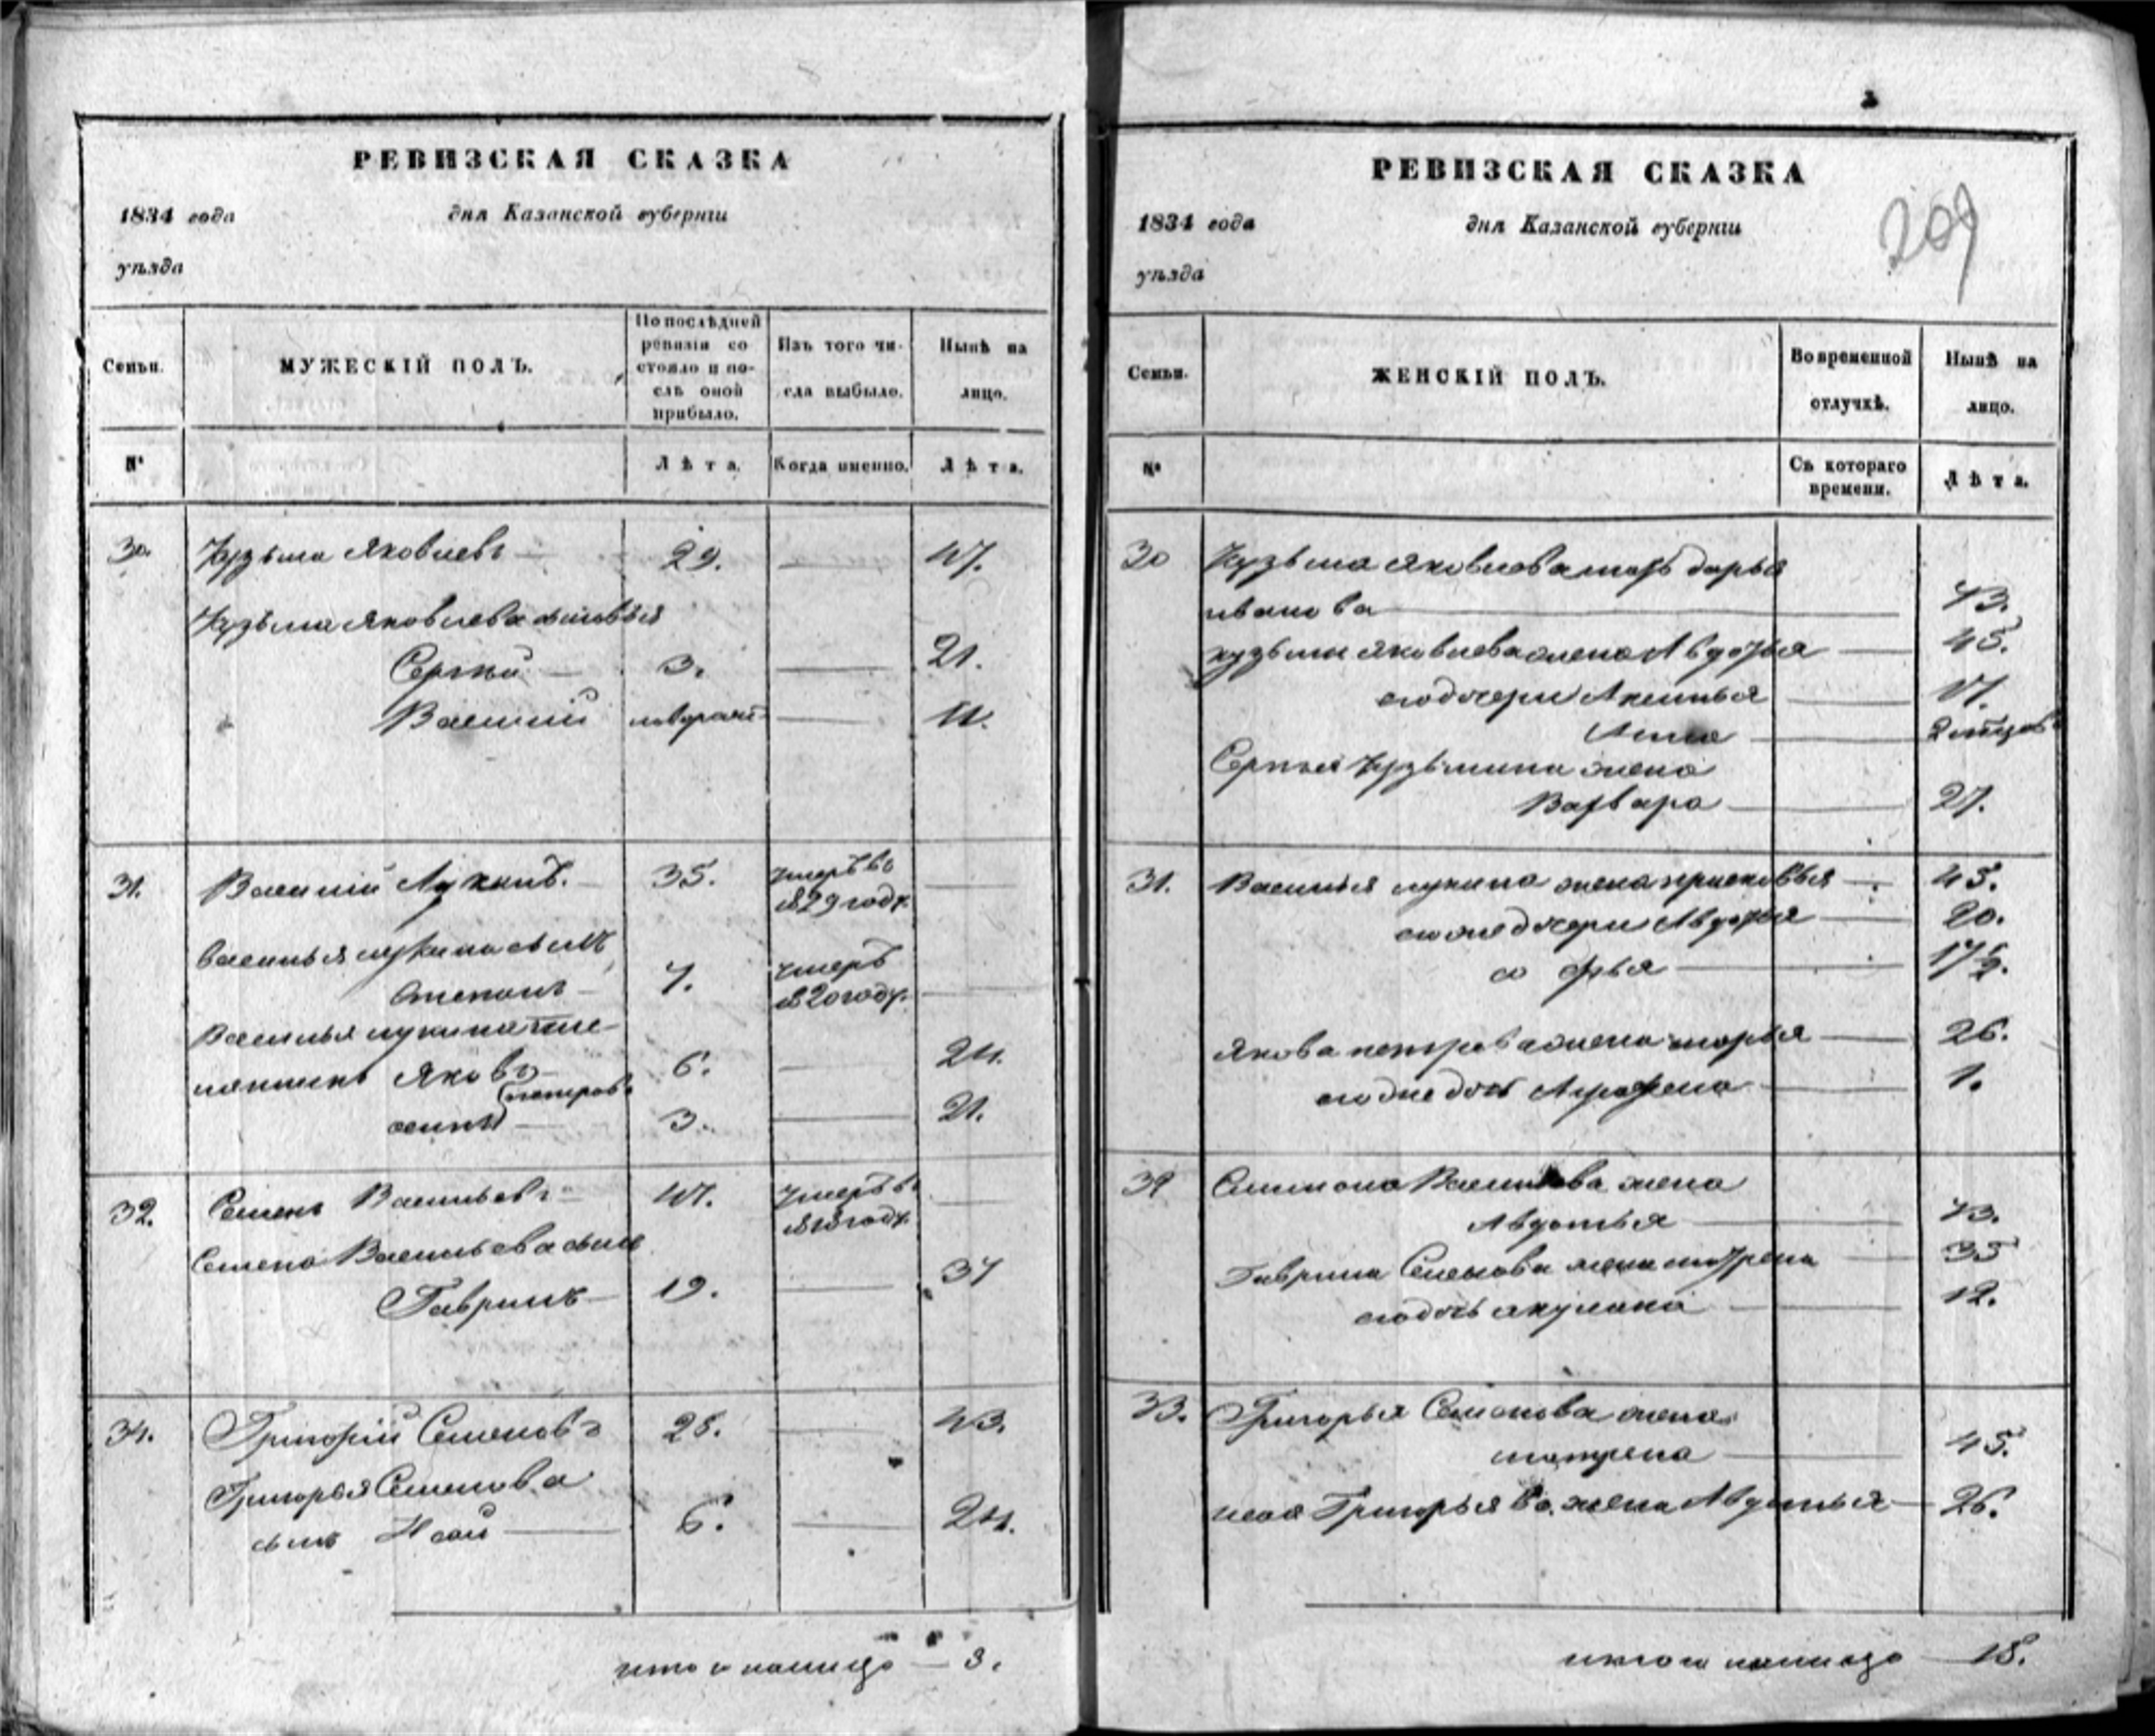 РЕВИЗСКАЯ СКАЗКА
1834 года дня Казанской губернiи
уѣзда
Семьи.
МУЖЕСКIЙ ПОЛЪ.
По послѣдней ревизiи со-
стояло и по-
слѣ оной
прибыло.
Изъ того чи-
сла выбыло.
Нынѣ на
лицо.
№
Лѣта.
Когда именно.
Лѣта.
30. Кузьма Яковлевъ 29. 47.
Кузьма Яковлева сыновья
Сергѣй 3. 21.
Василiй 11.
31. Василiй Лукинъ. 35. умеръ въ
1829 году.
Василья Лукина сынъ
Степанъ 7. умеръ
1820 году.
Василья лукина пле-
мянники Яковъ 6. 24.
петров
3. 21.
32. Семенъ Васильевъ 47. умеръ въ
году.
Семена Васильева сынъ
Гаврилъ 19. 37
34. Григорiй Семеновъ 25. 43.
Григорья Семенова
сынъ Исай 6. 24.
итого налицо 8.
РЕВИЗСКАЯ СКАЗКА
1834 года дня Казанской губернiи
209
уѣзда
Семьи.
ЖЕНСКIЙ ПОЛЪ.
Во временной
отлучкѣ.
Нынѣ на
лицо.
№
Съ котораго
времени.
Лѣта.
30 Кузьма Яковлева мать дарья
иванова 73.
кузьмы яковлева жена Авдотья 45.
его дочери Аксинья 17.
Анна
Сергѣя Кузьмина жена
Варвара 27.
31. Василья лукина жена прасковья 45.
его же дочери Авдотья 20.
софья 17½.
Якова петрова жена марья 26.
его же дочь Аграфена 1.
32 Симиона Васильева жена
Авдотья 73.
Гаврила Семенова жена матрена 35
его дочь акулина 12.
33. Григорья Семенова жена
матрена 45.
исая Григорьева жена Авдотья 26.
итого налицо 15.